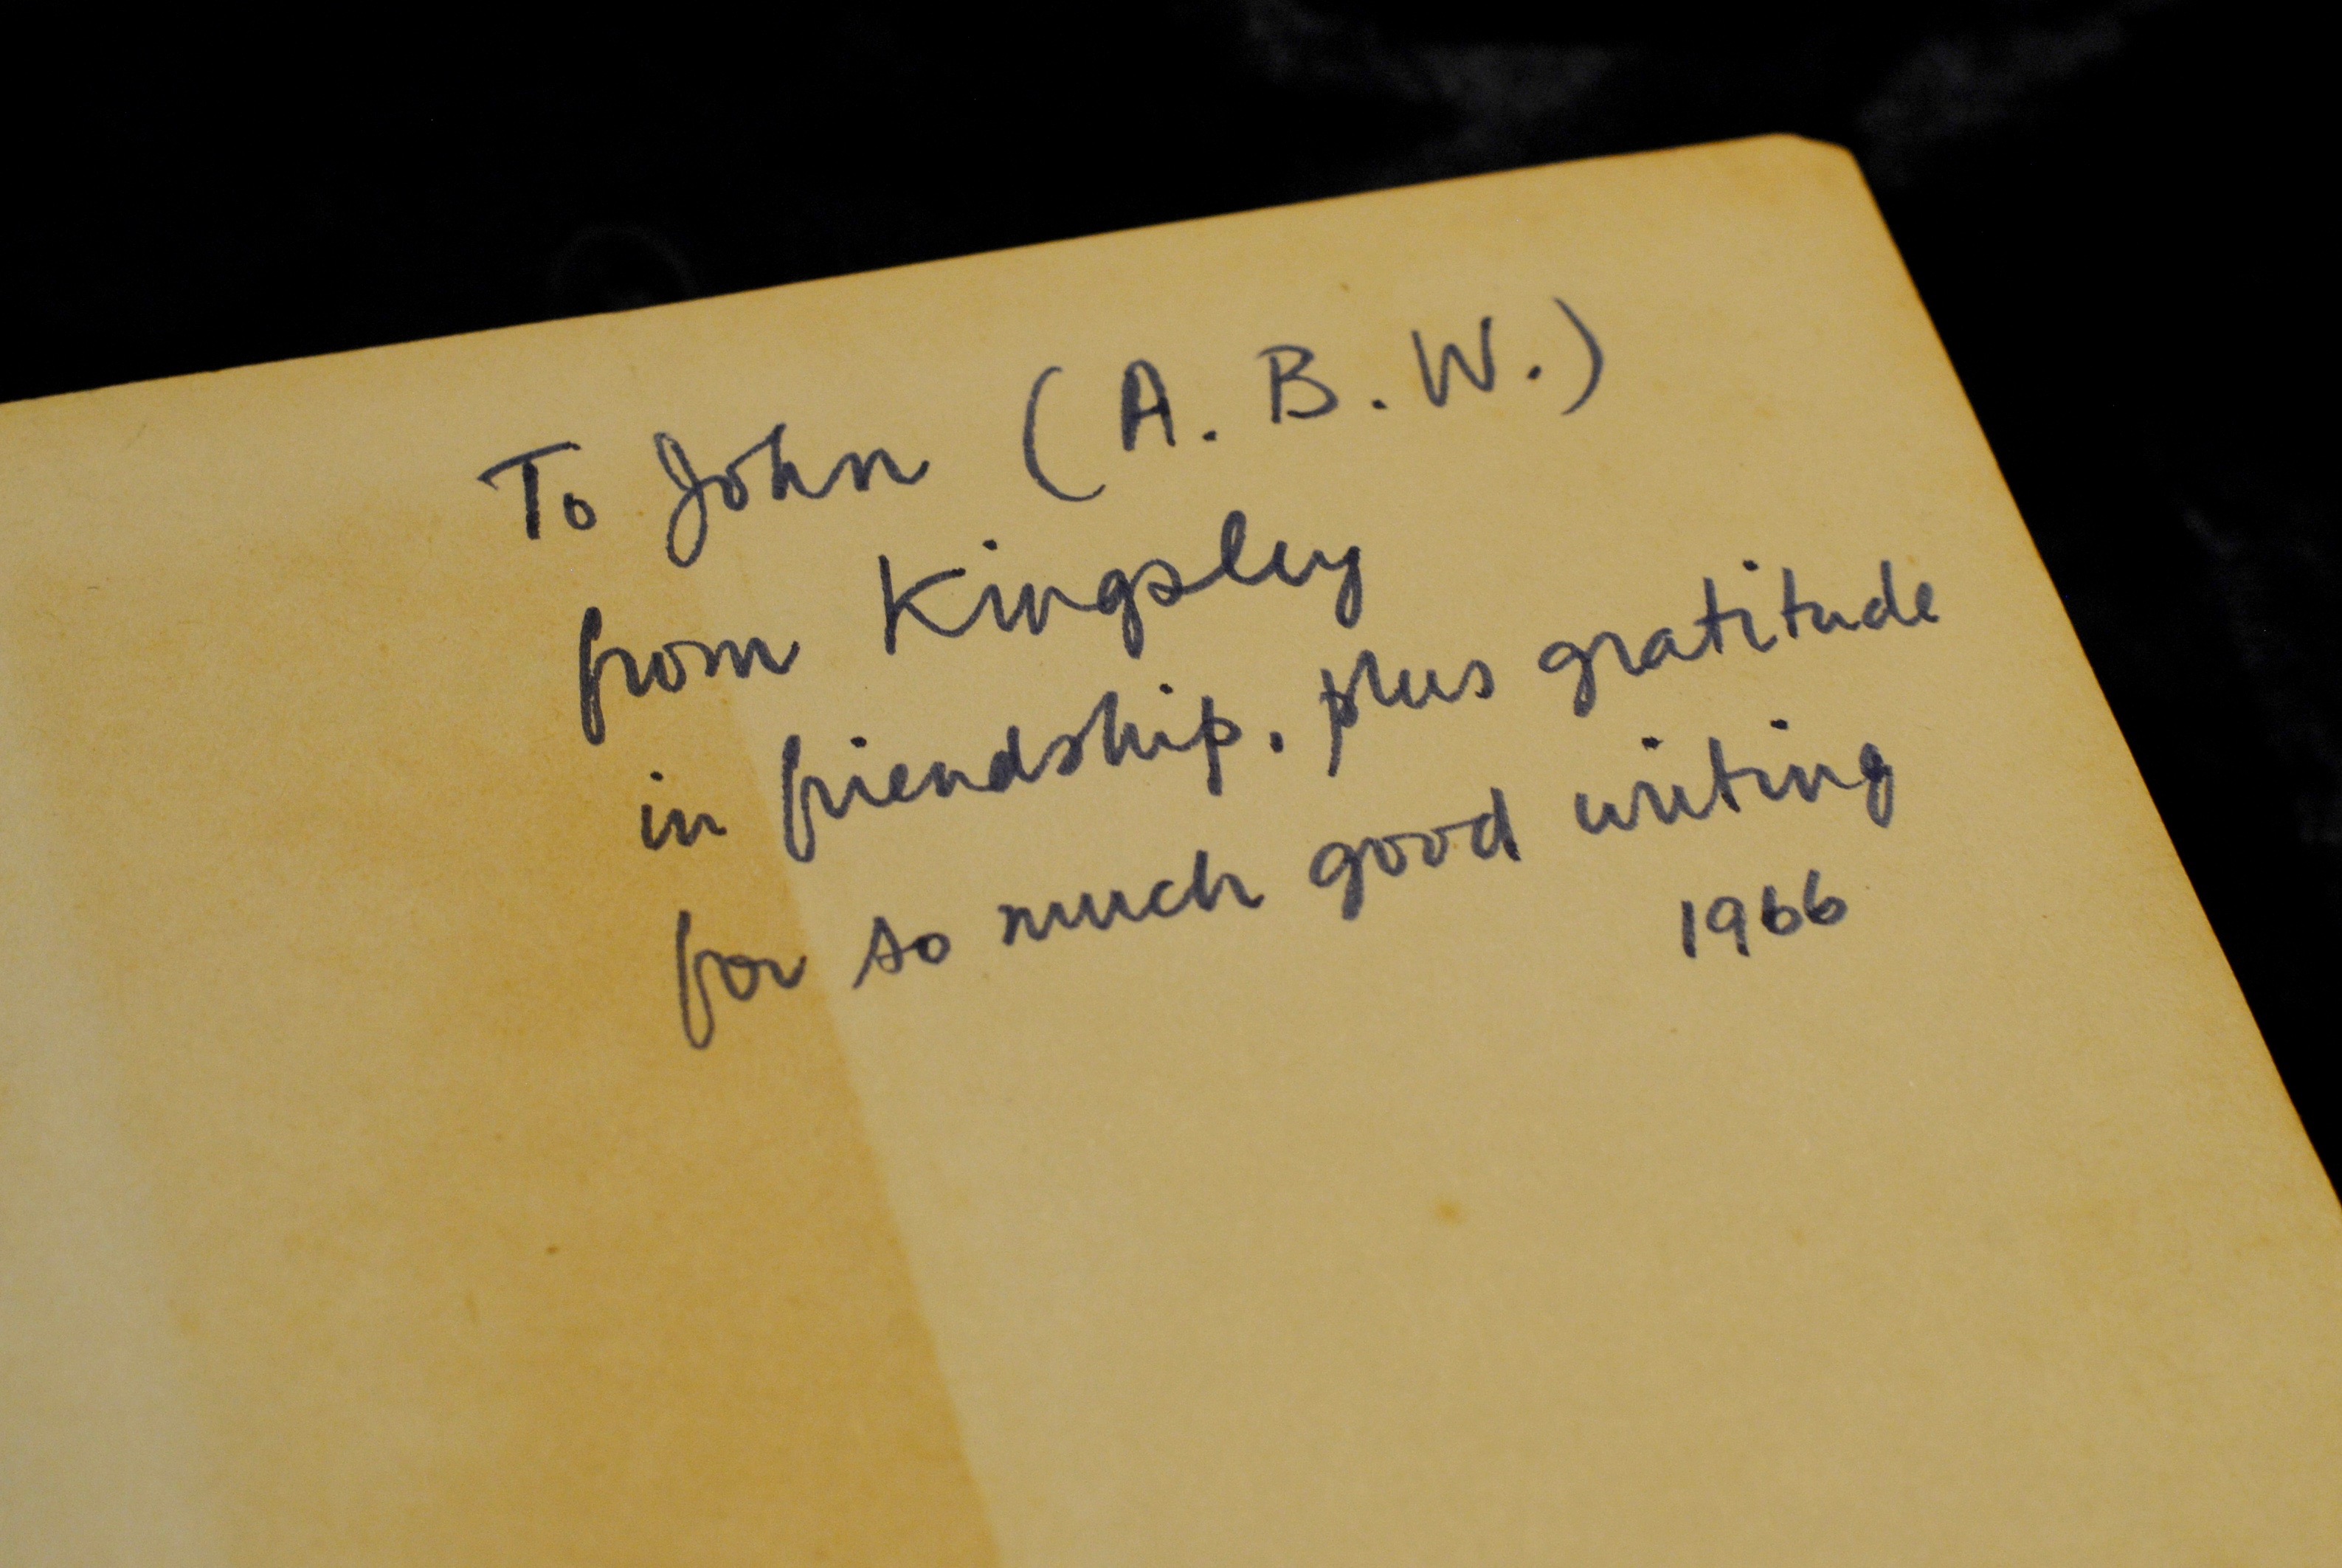 To John (A. B. W.)
from Kingsley
in friendship, plus gratitude
for so much good writing
1966